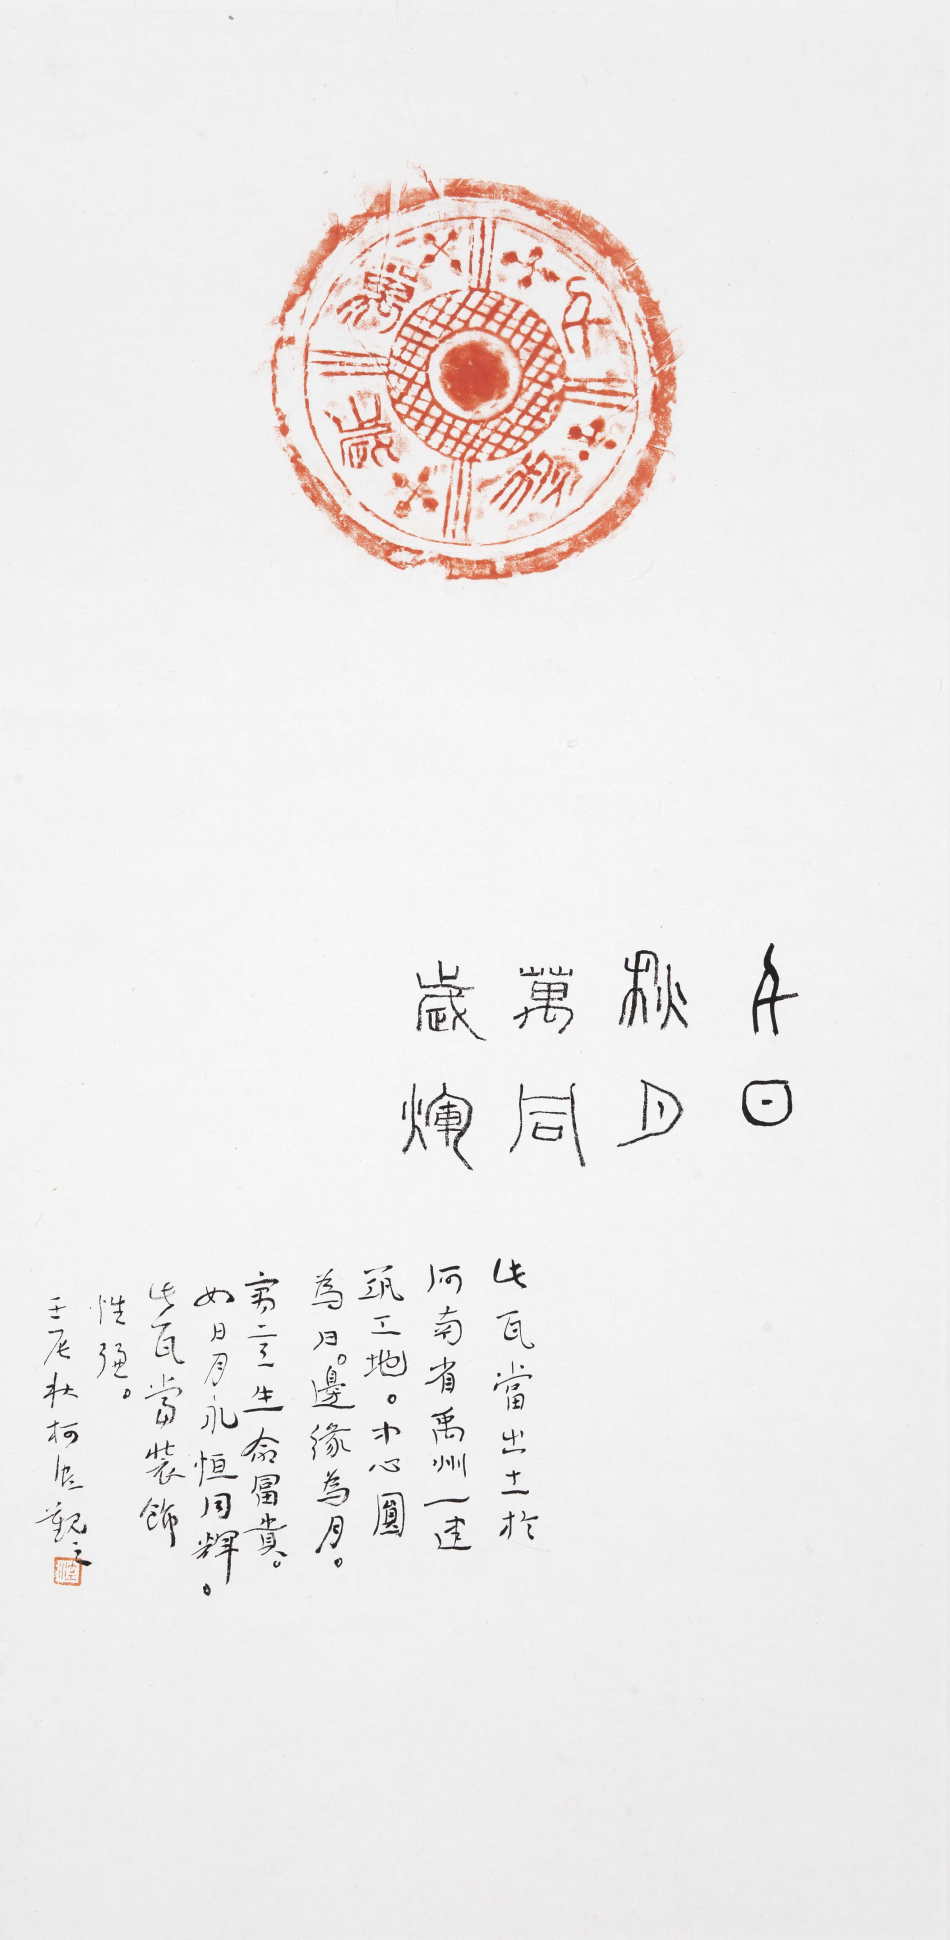 千秋萬歲
千秋萬歲
日月同輝
此瓦當出土於
河南省禹州一建
筑工地。中心圓
為日。邊緣為月。
寓意生命富貴。
如日月永恒同輝。
此瓦當裝飾
性強。
壬辰秋柯
觀之